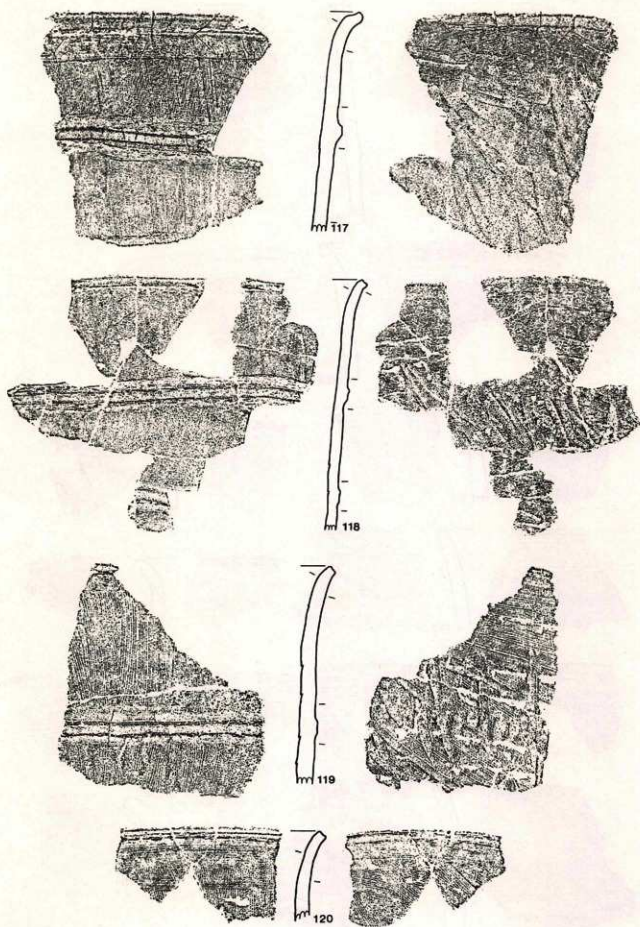 117
118
119
120